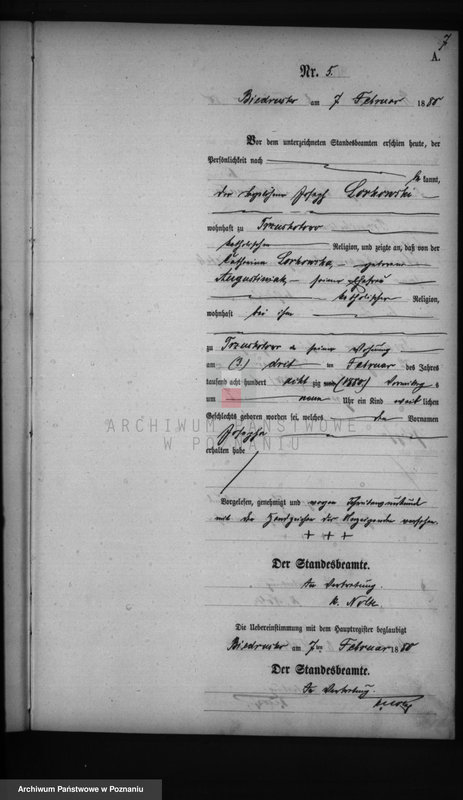 7
A.
Nr. 5.
Biedrusko am 7 Februar 1880
Vor dem unterzeichneten Standesbeamten erschien heute, der
Persönlichkeit nach
kannt,
der Joseph Lorkowski
wohnhaft zu
katholischer Religion, und zeigte an, daß von der
Katharina Lorkowska, geborene
Augustiniak, seiner Ehefrau
katholischer Religion,
wohnhaft bei ihm
zu in seiner Wohnung
am (3.) drei ten Februar des Jahres
tausend acht hundert acht zig (1880) Vormittags
um neun Uhr ein Kind weib lichen
Geschlechts geboren worden sei, welches den Vornamen
Josepha
erhalten habe
ARCHIWUM PAŃSTWOWE
W POZNANIU
Vorgelesen, genehmigt und wegen Schreibensunkunde
mit den Handzeichen des Anzeigenden versehen.
+ + +
Der Standesbeamte.
In Vertretung.
K. Nolte.
Die Uebereinstimmung mit dem Hauptregister beglaubigt
Biedrusko am 7ten Februar 1880
Der Standesbeamte.
In Vertretung.
Archiwum Państwowe w Poznaniu